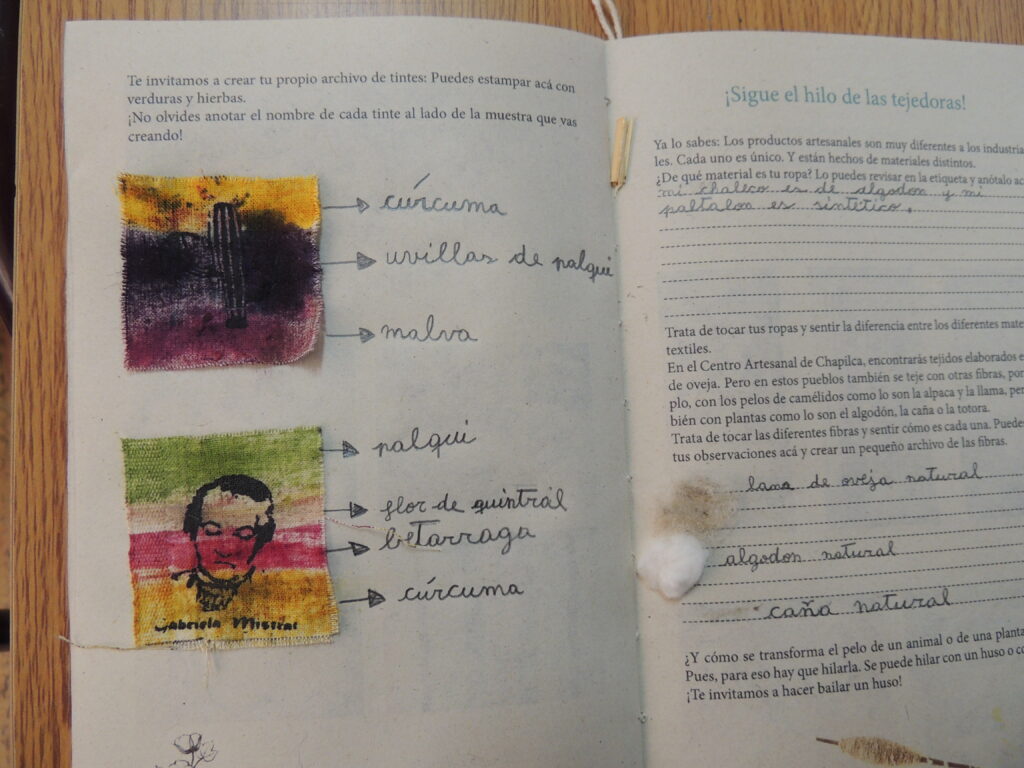 Te invitamos a crear tu propio archivo de tintes: Puedes estampar acá con
verduras y hierbas.
¡No olvides anotar el nombre de cada tinte al lado de la muestra que vas
creando!
cúrcuma
uvillas de palqui
malva
palqui
flor de quintral
betarraga
cúrcuma
Gabriela Mistral
¡Sigue el hilo de las tejedoras!
Ya lo sabes: Los productos artesanales son muy diferentes a los industria
les. Cada uno es único. Y están hechos de materiales distintos.
¿De qué material es tu ropa? Lo puedes revisar en la etiqueta y anótalo ac
mi chaleco es de algodon y mi
paltalon es sintético.
Trata de tocar tus ropas y sentir la diferencia entre los diferentes mate
textiles.
En el Centro Artesanal de Chapilca, encontrarás tejidos elaborados e
de oveja. Pero en estos pueblos también se teje con otras fibras, por
plo, con los pelos de camélidos como lo son la alpaca y la llama, pe
bién con plantas como lo son el algodón, la caña o la totora.
Trata de tocar las diferentes fibras y sentir cómo es cada una. Puede
tus observaciones acá y crear un pequeño archivo de las fibras.
lana de oveja natural
algodon natural
caña natural
¿Y cómo se transforma el pelo de un animal o de una planta
Pues, para eso hay que hilarla. Se puede hilar con un huso o co
¡Te invitamos a hacer bailar un huso!